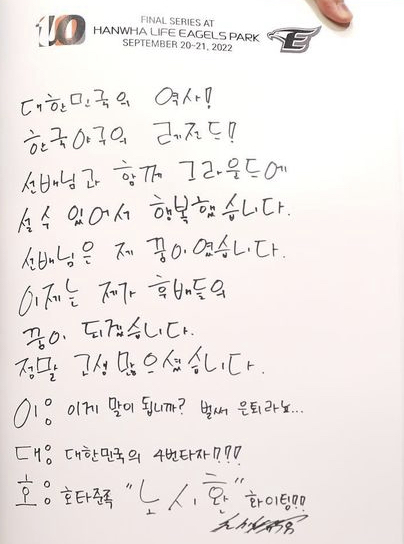 10
FINAL SERIES AT
HANWHA LIFE EAGELS PARK
SEPTEMBER 20~21, 2022
E
대한민국의 역사!
한국야구의 레전드!
선배님과 함께 그라운드에
설 수 있어서 행복했습니다.
선배님은 제 꿈이였습니다.
이제는 제가 후배들의
꿈이 되겠습니다.
정말 고생 많으셨습니다.
이 : 이게 말이 됩니까? 벌써 은퇴라뇨...
대 : 대한민국의 4번타자!!!
호 : 호타준족 "노시환" 화이팅!!